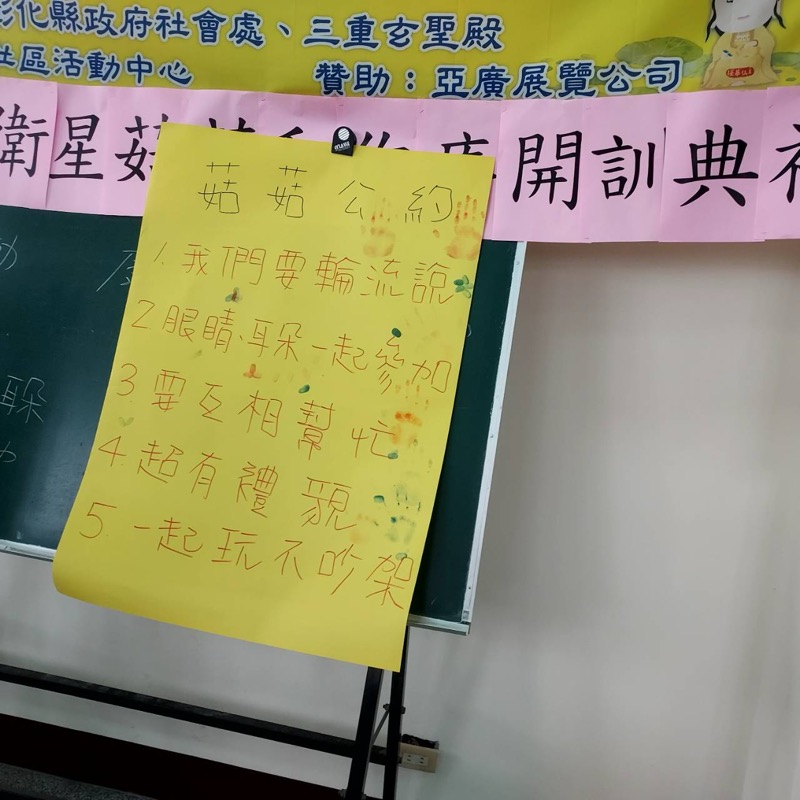 彰化縣政府社會處、三重玄聖殿
社區活動中心 贊助：亞廣展覽公司
衛星菇 開訓典礼
菇菇公約
1.我們要輪流說
2眼睛、耳朵一起參加
3要互相幫忙
4.超有禮貌
5.一起玩不吵架
朵